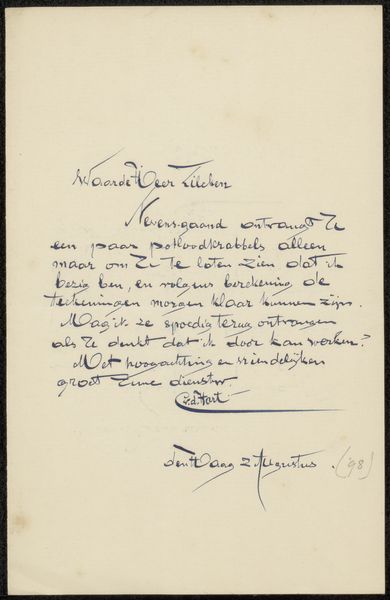 Waarde Heer Zilcken
Nevensgaand ontvangt U
een paar potloodkrabbels alleen
maar om U te laten zien dat ik
bezig ben, en volgens berekening de
teekeningen morgen klaar kunnen zijn.
Mag ik ze spoedig terug ontvangen
als U denkt dat ik door kan werken?
Met hoogachting en vriendelijken
groet Uwe dienstw.
den Haag 2 Augustus. ('98)